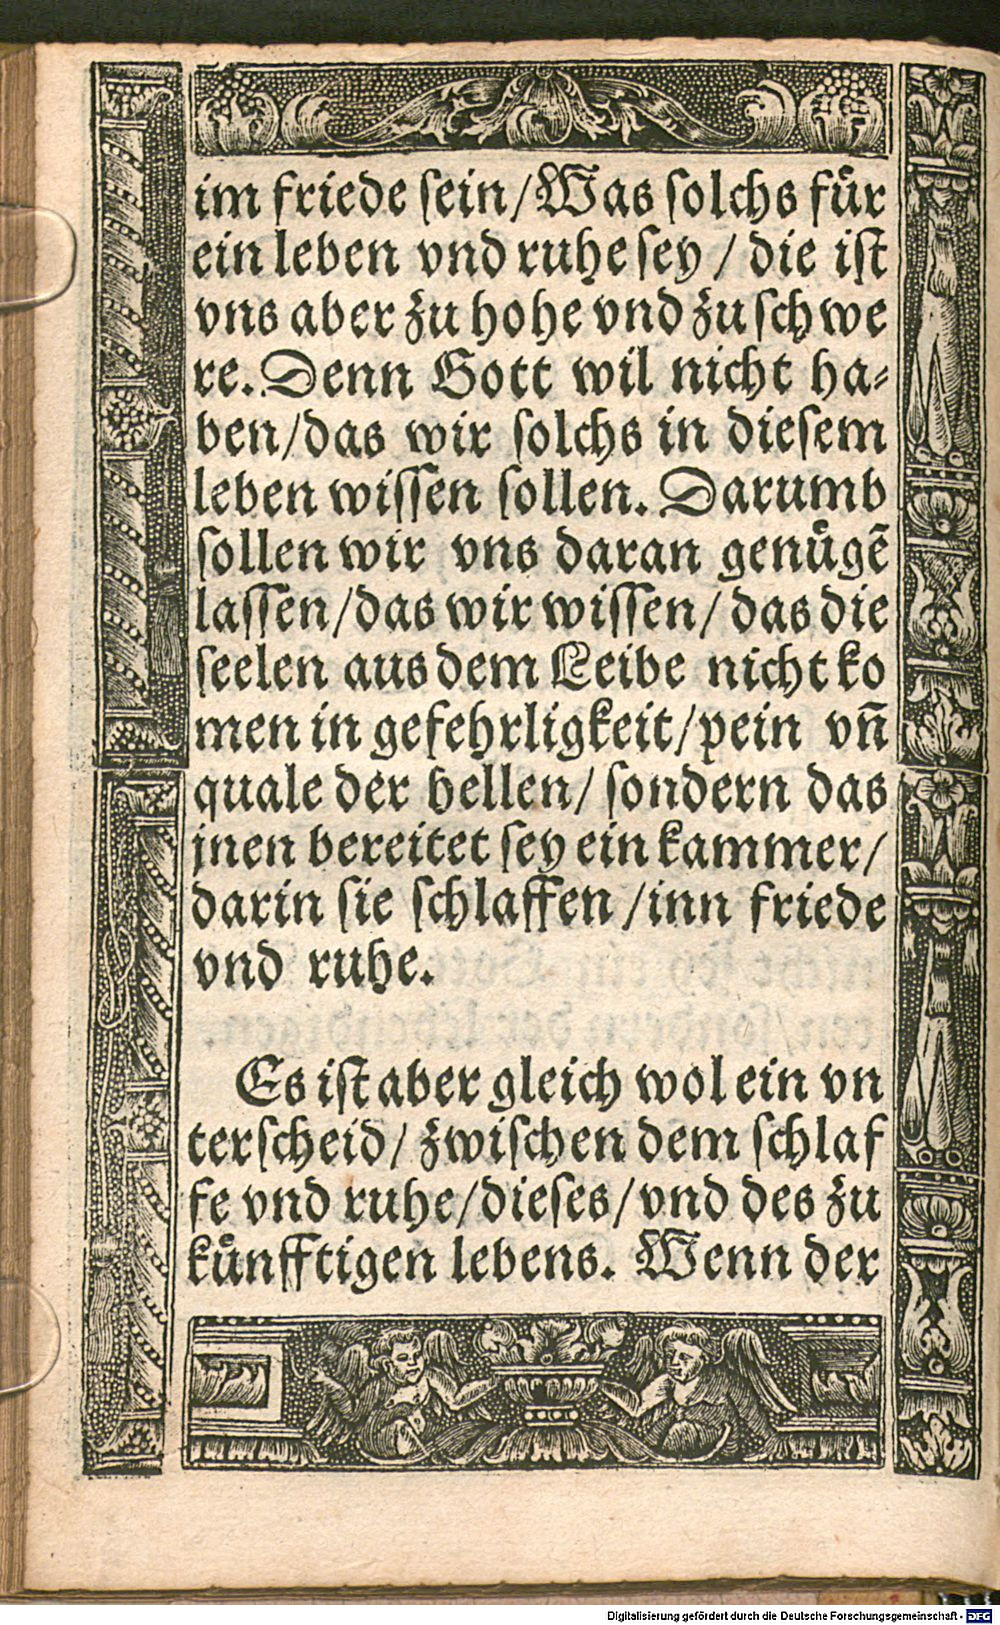 im friede sein/Was solchs fuͤr
ein leben vnd ruhe sey / die ist
vns aber zu hohe vnd zu schwe
re. Denn Gott wil nicht ha⸗
ben/das wir solchs in diesem
leben wissen sollen. Darumb
sollen wir vns daran genuͤgẽ
lassen/das wir wissen/ das die
seelen aus dem Leibe nicht ko
men in gefehrligkeit/pein vñ
quale der hellen/ sondern das
jnen bereitet sey ein kammer/
darin sie schlaffen /inn friede
vnd ruhe.
Es ist aber gleich wol ein vn
terscheid/ zwischen dem schlaf
fe vnd ruhe/dieses/vnd des zu
kuͤnfftigen lebens. Wenn der
Digitalisierung gefördert durch die Deutsche Forschungsgemeinschaft - DFG